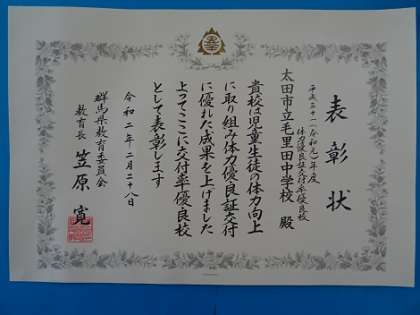 表彰状
平成三十一(令和元)年度
体力優良証交付率優良校
太田市立毛里田中学校 殿
貴校は児童生徒の体力向上
に取り組み体力優良証交付
に優れた成果を上げました
よってここに交付率優良校
として表彰します
令和二年二月二十八日
群馬県教育委員会
教育長 笠原 寛